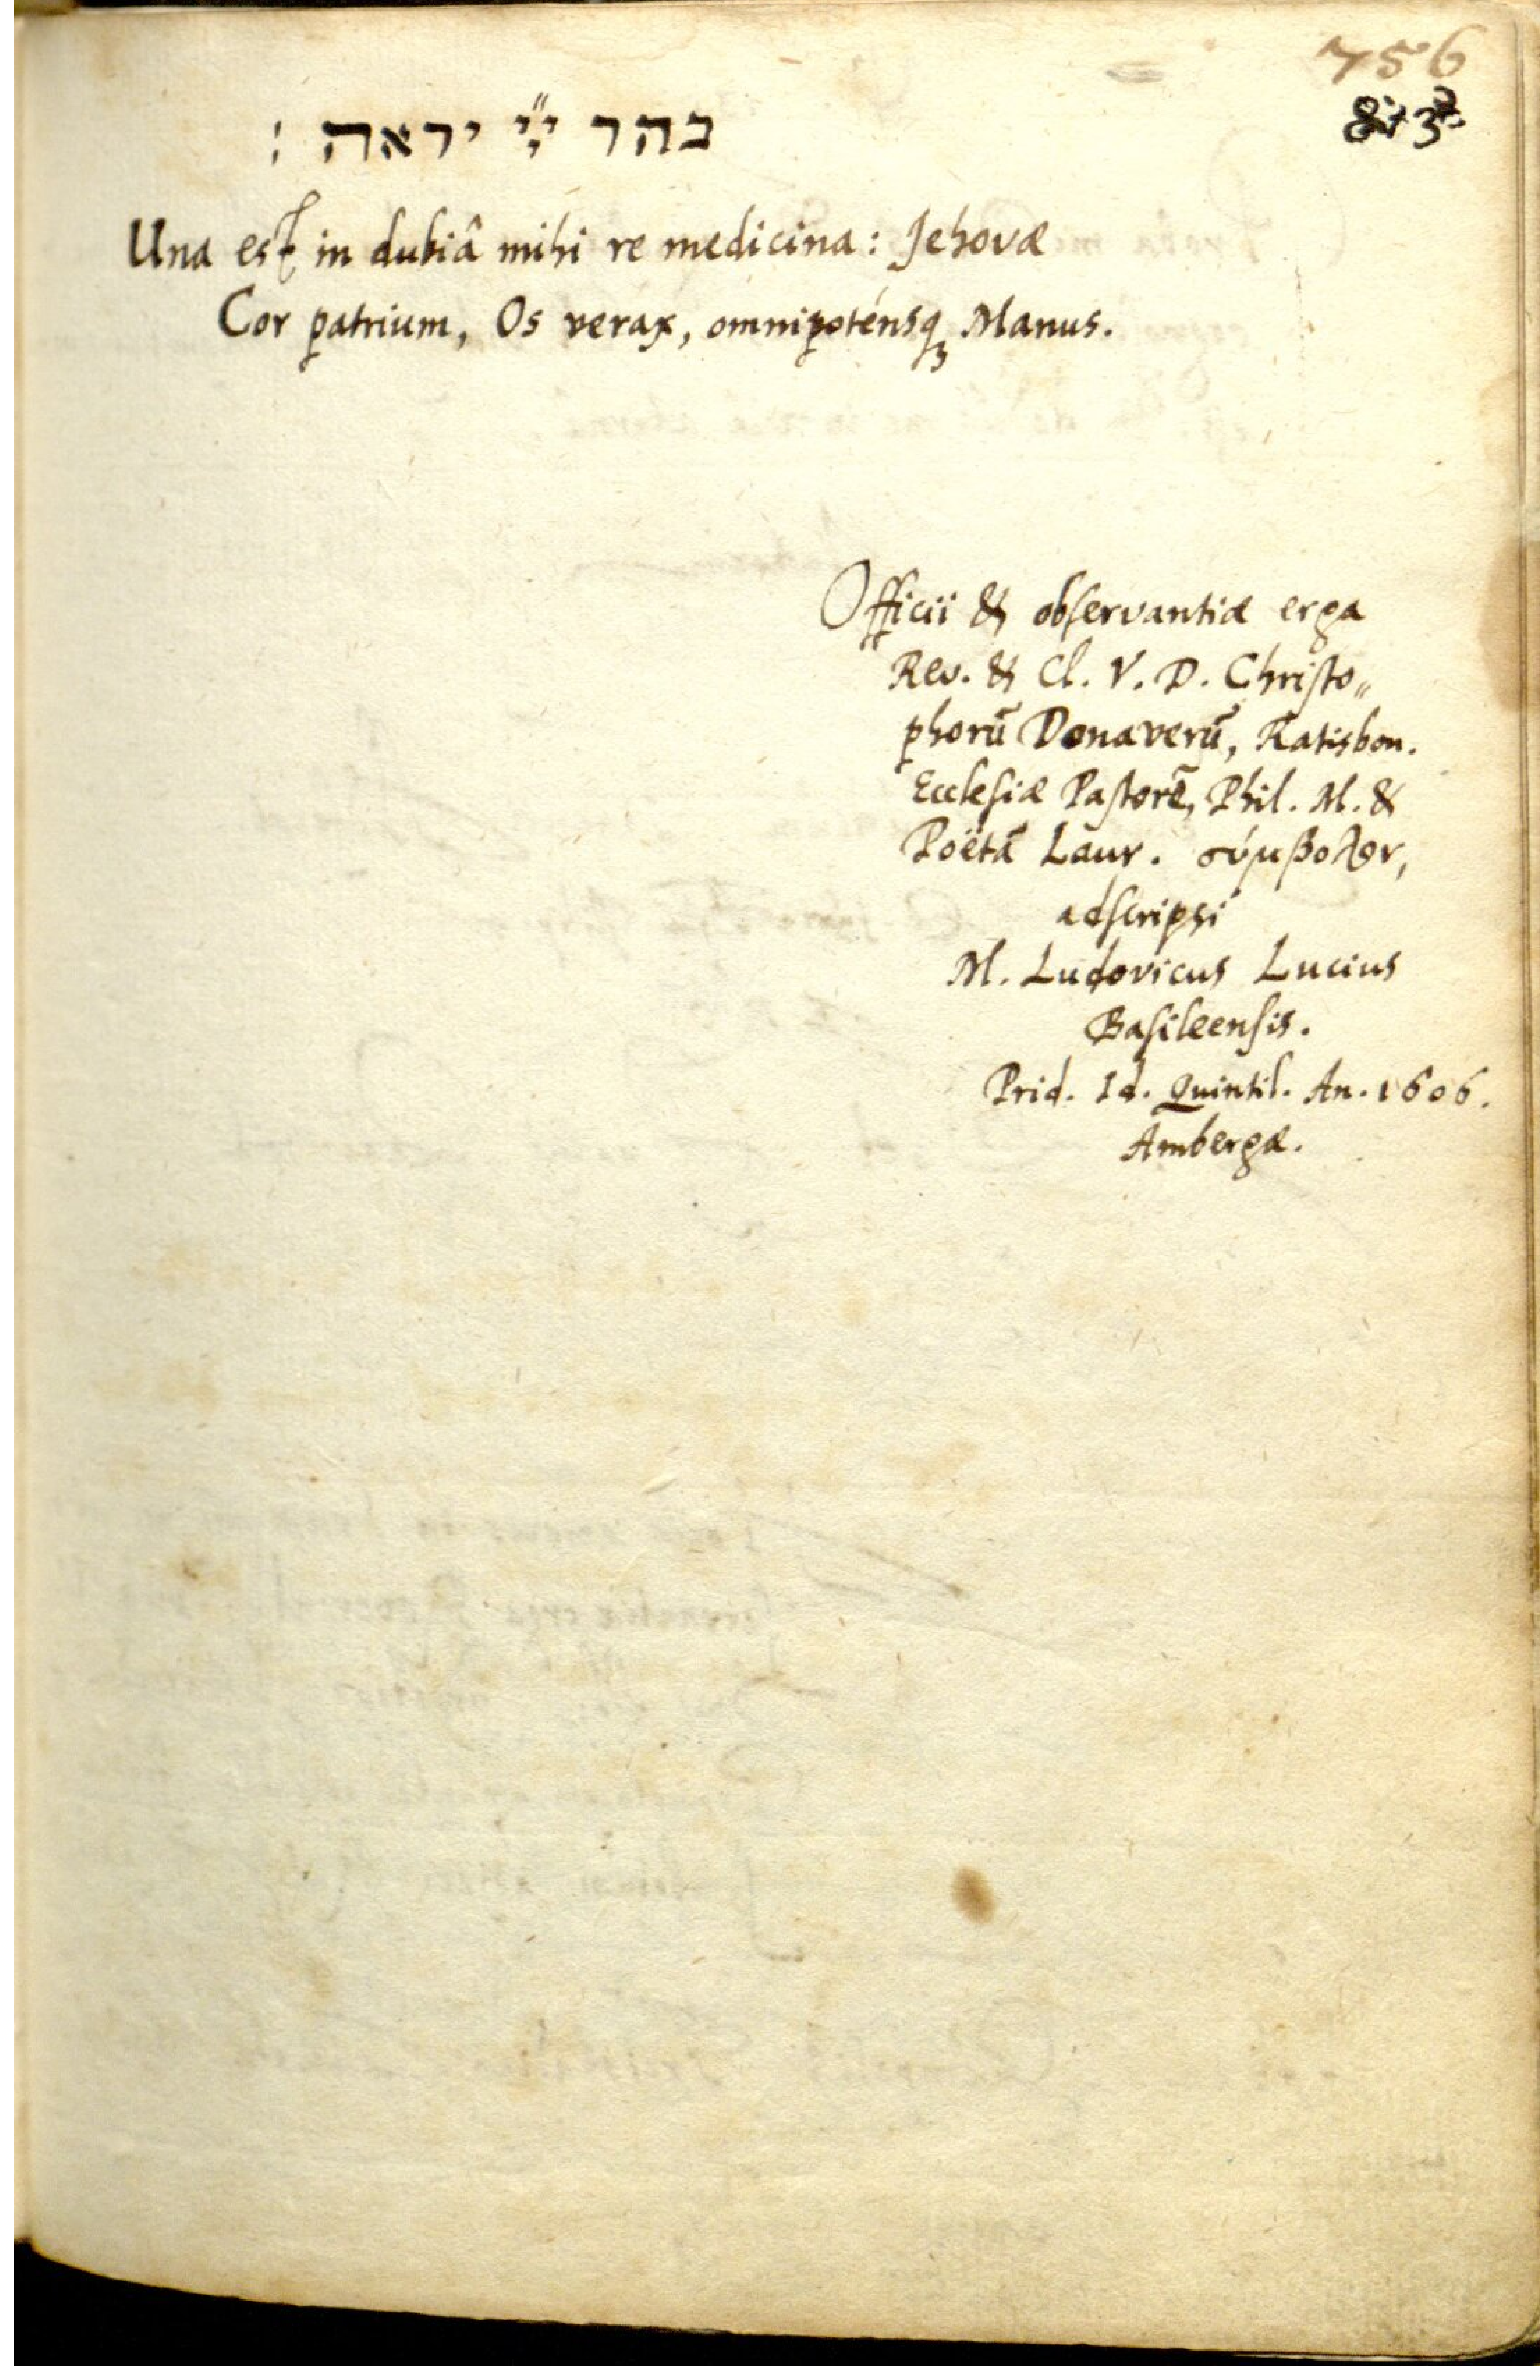 756
בהר יי יראה :
Una est in dubiâ mihi re medicina: Jehovæ
Cor patrium, Os verax, omnipoténsq₃ Manus.
Officii & obſervantiæ erga
Rev. & Cl. V. D. Chriſto„
phorū Donaverū, Ratisbon.
Eccleſiæ Paſtorē, Phil. M. &
Poëtā Laur. σύμβολον,
adſcripſi
M. Ludovicus Lucius
Baſileenſis.
Prid. Id. Quintil. An. 1606.
Ambergæ.